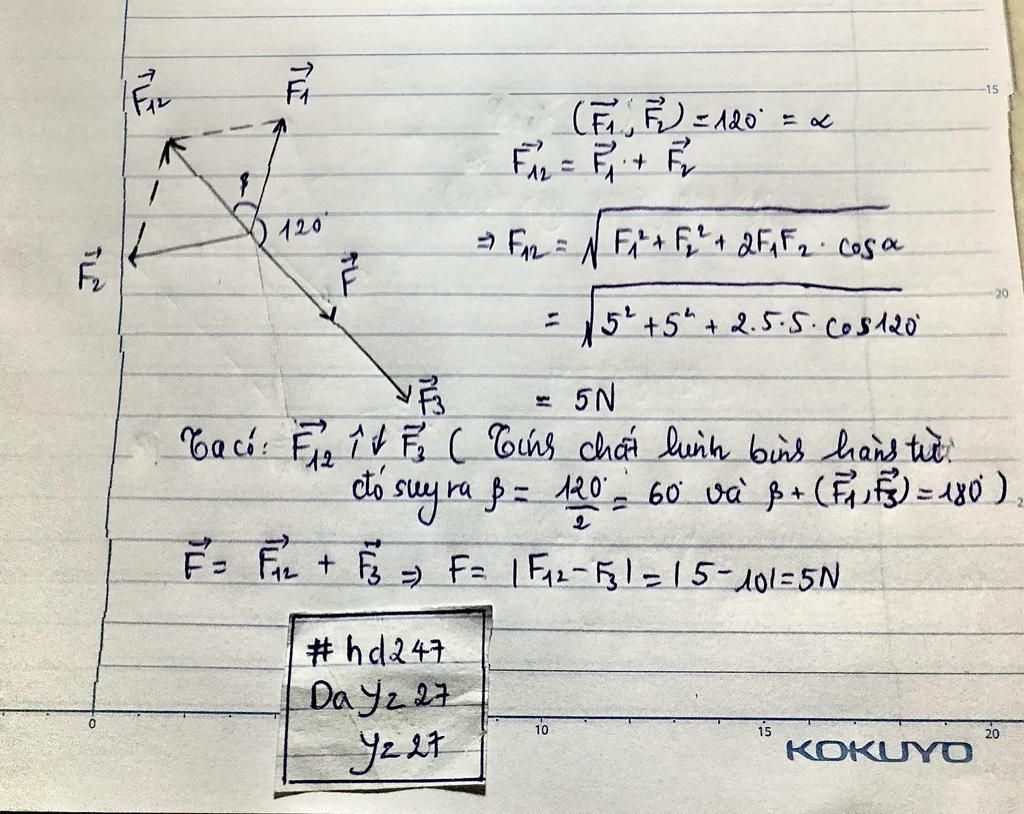 F₁₂⃗
F₁⃗
(F₁⃗, F₂⃗) = 120° = α
F₁₂⃗ = F₁⃗ + F₂⃗
β
120°
F₂⃗
F⃗
F₃⃗
⇒ F₁₂ = √(F₁² + F₂² + 2F₁F₂ . cosα)
= √(5² + 5² + 2.5.5. cos120°)
= 5N
Ta có: F₁₂⃗ ↑↓ F₃⃗ ( Tính chất hình bình hành từ
đó suy ra β = 120°/2 = 60° và β + (F₁⃗, F₃⃗) = 180° )
F⃗ = F₁₂⃗ + F₃⃗ ⇒ F = |F₁₂ - F₃| = |5 - 10| = 5N
# hd247
Da yz 27
yz 27
15
20
0
10
15
20
KOKUYO